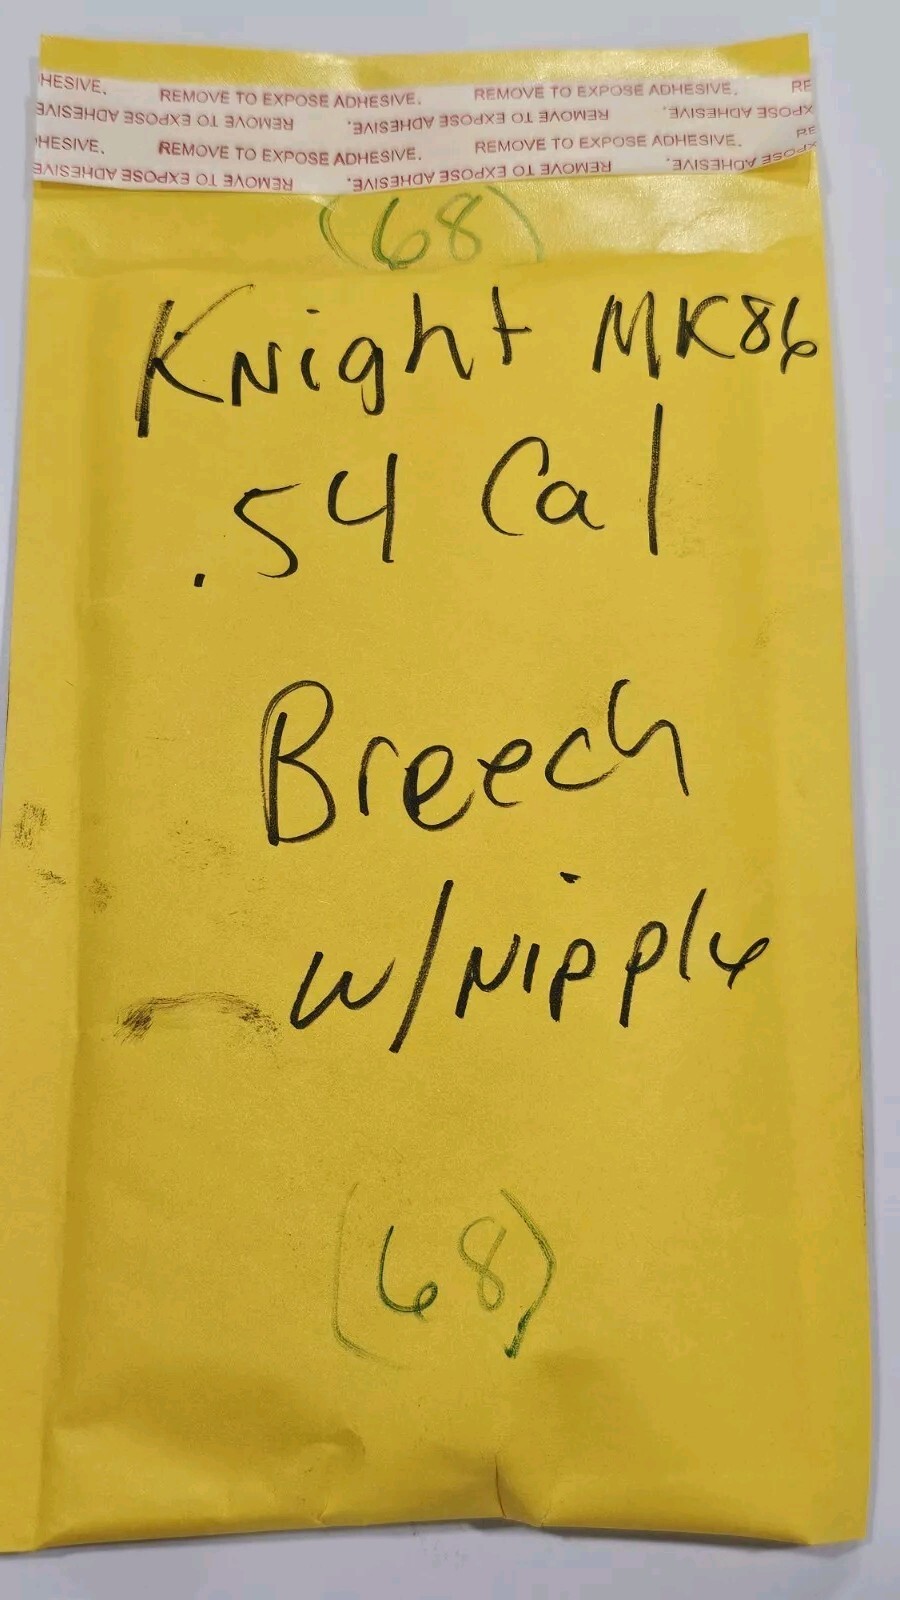 HESIVE. REMOVE TO EXPOSE ADHESIVE. REMOVE TO EXPOSE ADHESIVE. RE
REMOVE TO EXPOSE ADHESIVE. REMOVE TO EXPOSE ADHESIVE. XPOSE ADHESIVE.
HESIVE. REMOVE TO EXPOSE ADHESIVE. REMOVE TO EXPOSE ADHESIVE. RE
REMOVE TO EXPOSE ADHESIVE. REMOVE TO EXPOSE ADHESIVE. XPOSE ADHESIVE.
(68)
Knight MK86
.54 Cal
Breech
w/Nipple
(68)